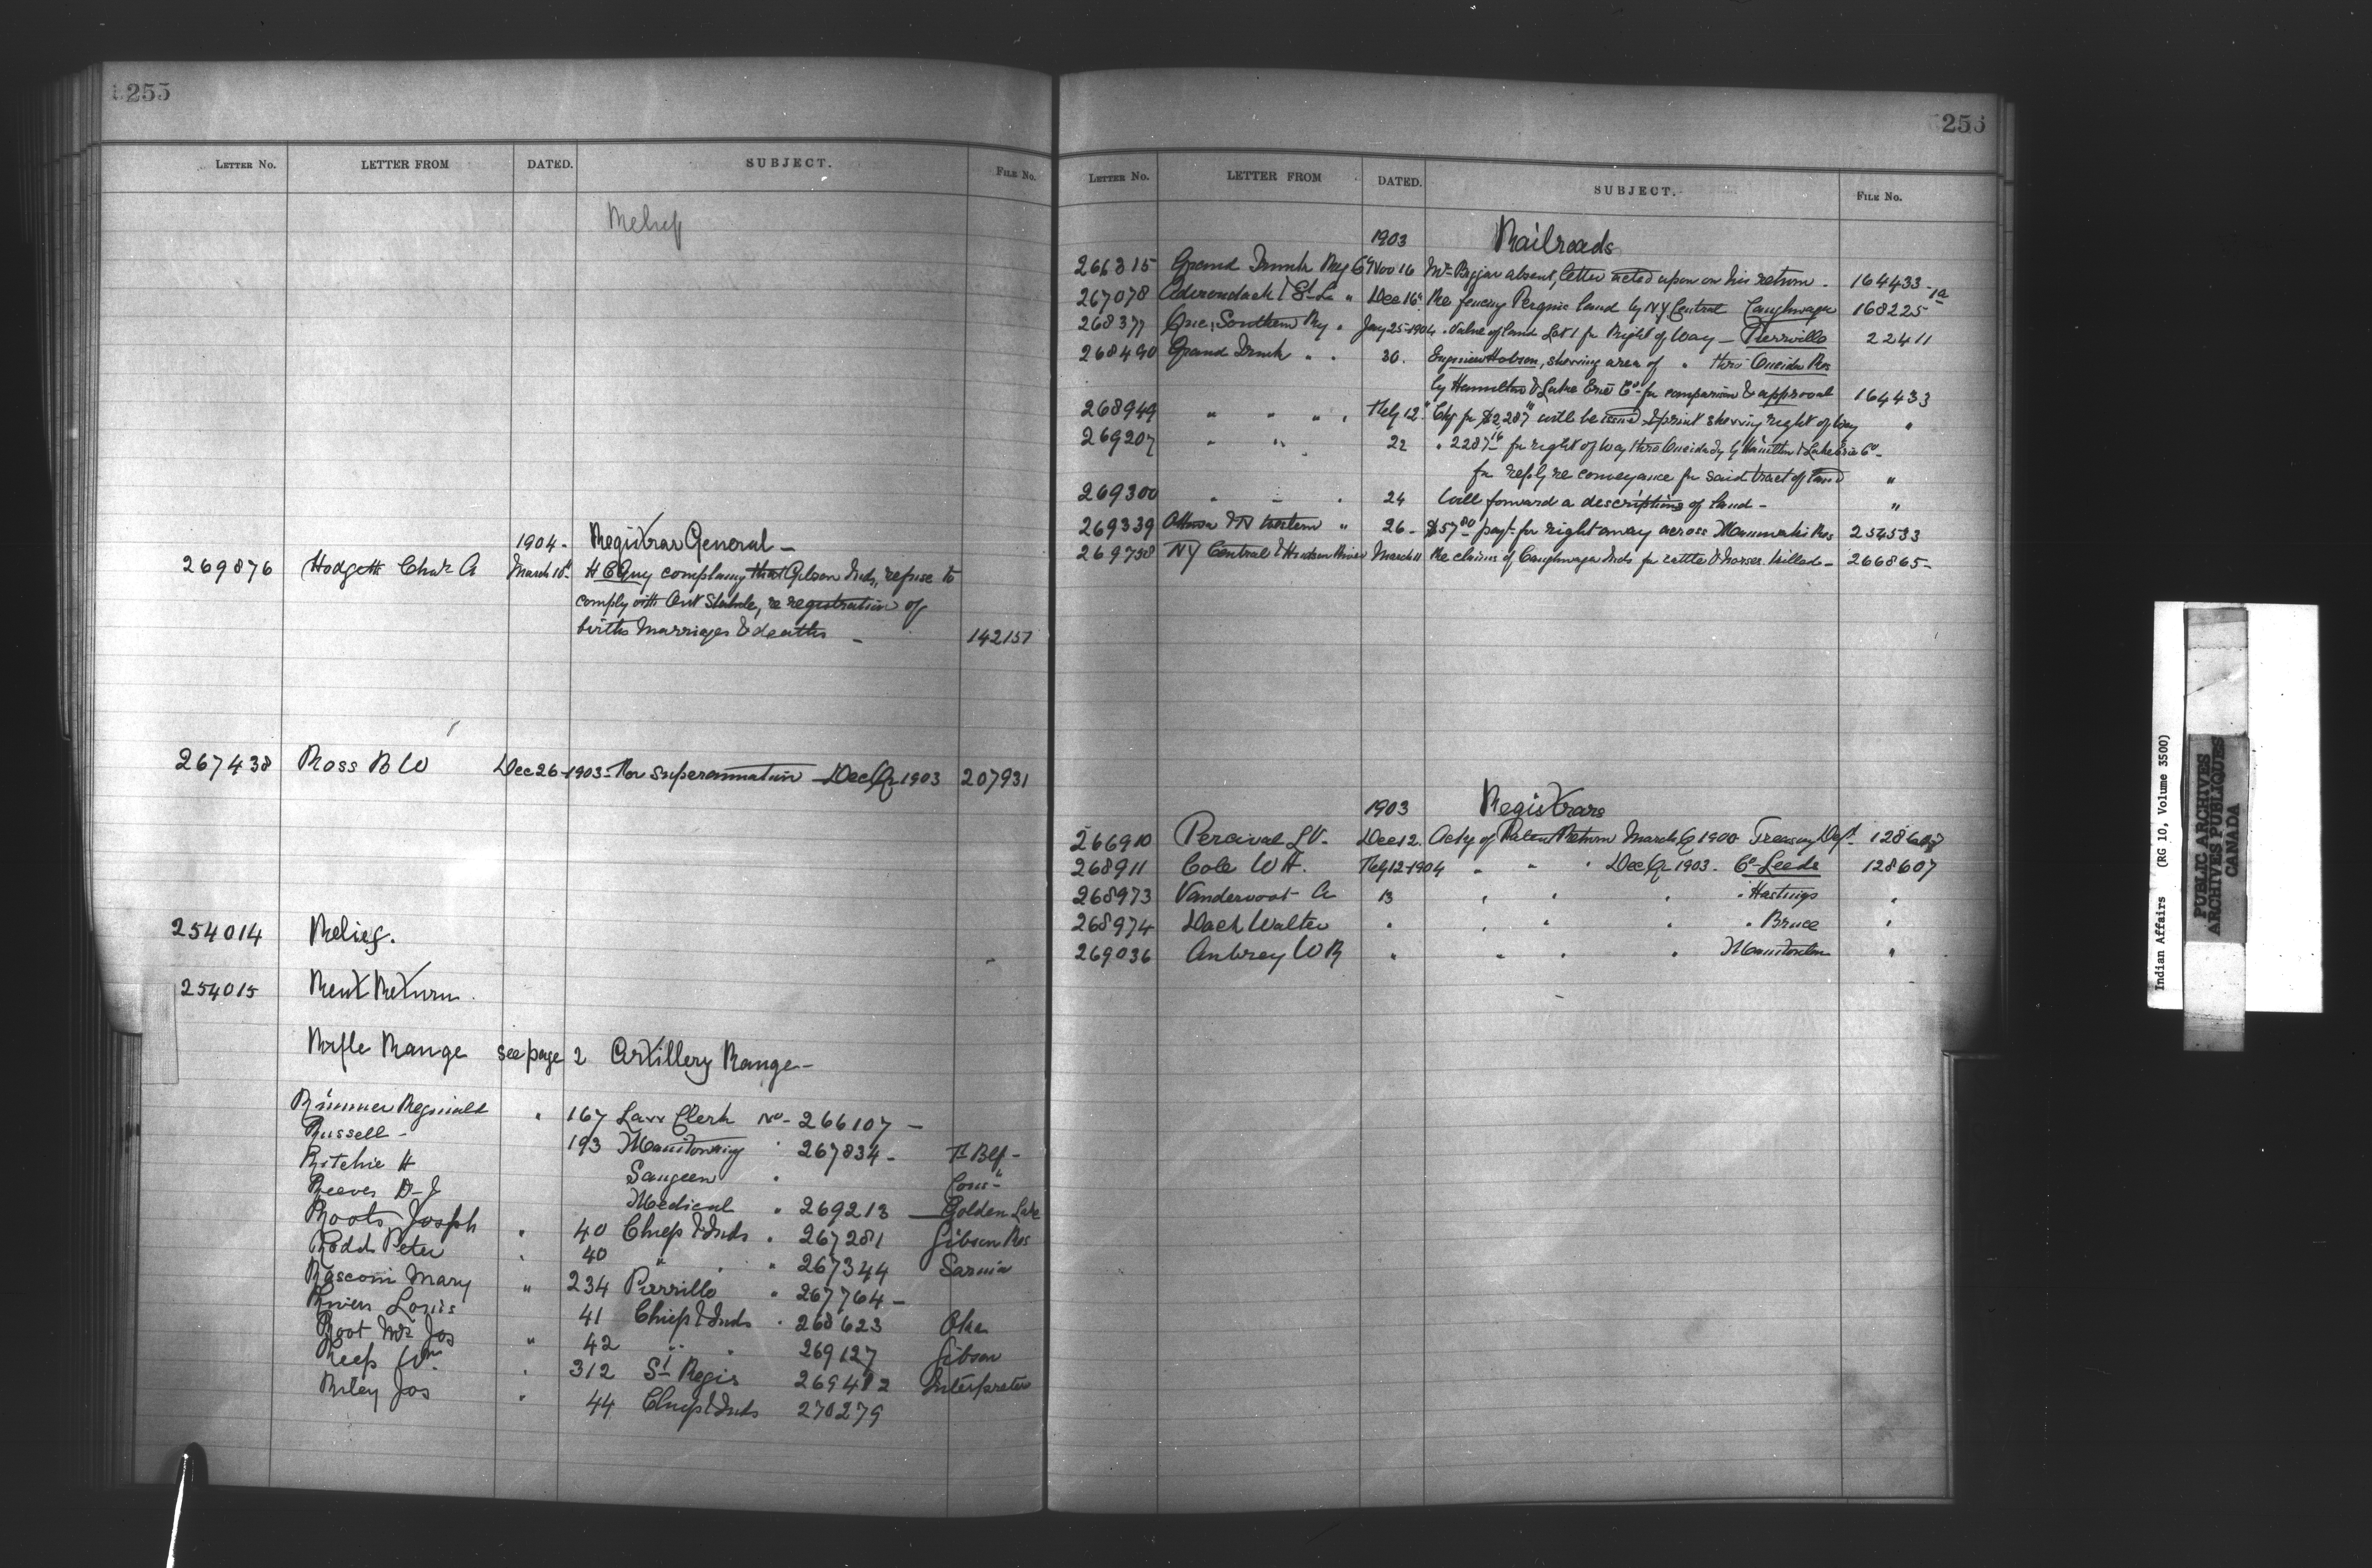 255
LETTER NO. LETTER FROM DATED. SUBJECT. FILE No.
1904- Registrar General -
269876 Hodgett Chas A March 10" H C Guy complaing that Gibson Inds, refuse to
comply with Ont Statute, re registration of
births Marriages & deaths - 142157
267438 Ross B W Dec 26-1903- Re Superannuation - Dec Qr 1903 207931
254014 Relief.
254015 Rent Return.
Rifle Range see page 2 Artillery Range-
Rimmer Reginald " 167 Law Clerk No- 266107 -
Russell - 193 Manitowaning " 267834 -
Ritchie H Saugeen "
Reeves D-J Medical " 269213 - Golden Lake
Roots Joseph " 40 Chiefs & Inds " 267281 Gibson Res
Rodd Peter " 40 " " " 267344 Sarnia
Rasconi Mary " 234 Pierrville " 267764 -
Riven Louis 41 Chiefs & Inds " 268623 Oka
Root Mrs Jos " 42 " " 269127 Gibson
Reep Wm " 312 St Regis 269482 Interpreter
Riley Jos " 44 Chiefs & Inds 270279
256
LETTER NO. LETTER FROM DATED. SUBJECT. FILE No.
1903 Railroads
266315 Grand Trunk Ry Co Nov 16 Mr Biggar absent, letter acted upon on his return. 164433-1a
267078 Adirondack & St L " Dec 16" Re fencing land by N Y Central Caughnaga 168225
268377 Que, Southern Ry " Jany 25-1904 " Value of land Lot 1 for Right of Way - Pierrville 22411
268490 Grand Trunk " " 30. Engineer Hobson, showing area of " thro Oneida Res
by Hamilton & Lake Erie Co - for comparison & approval 164433
268949 " " " " Feby 12" Chq for $2287 will be issued, & print showing right of Way "
269207 " " 22 " 2287 16 for right of Way thro Oneida Tp by Hamilton & Lake Erie Co -
for reply re conveyance for said tract of land "
269300 " " " 24 Will forward a description of land - "
269339 Ottawa & N Western " 26- $57 80 payt for right away across Maniwaki Res 254533
269738 N Y Central & Hudson River March 11 Re claims of Caughnaga Inds for cattle & horses killed - 266865-
1903 Registrars
266910 Percival L V. Dec 12. Ackg of Patent Return March Q 1900 Treasury Dept. 128607
268911 Cole W H. Feby 12-1904 " " Dec Qr 1903. Co Leeds 128607
268973 Vandervoort A 13 " " " " Hastings "
268974 Dack Walter " " " " " Bruce "
269036 Aubrey W R " " " " Manitoulin "
Indian Affairs (RG 10, Volume 3500)
PUBLIC ARCHIVES
ARCHIVES PUBLIQUES
CANADA